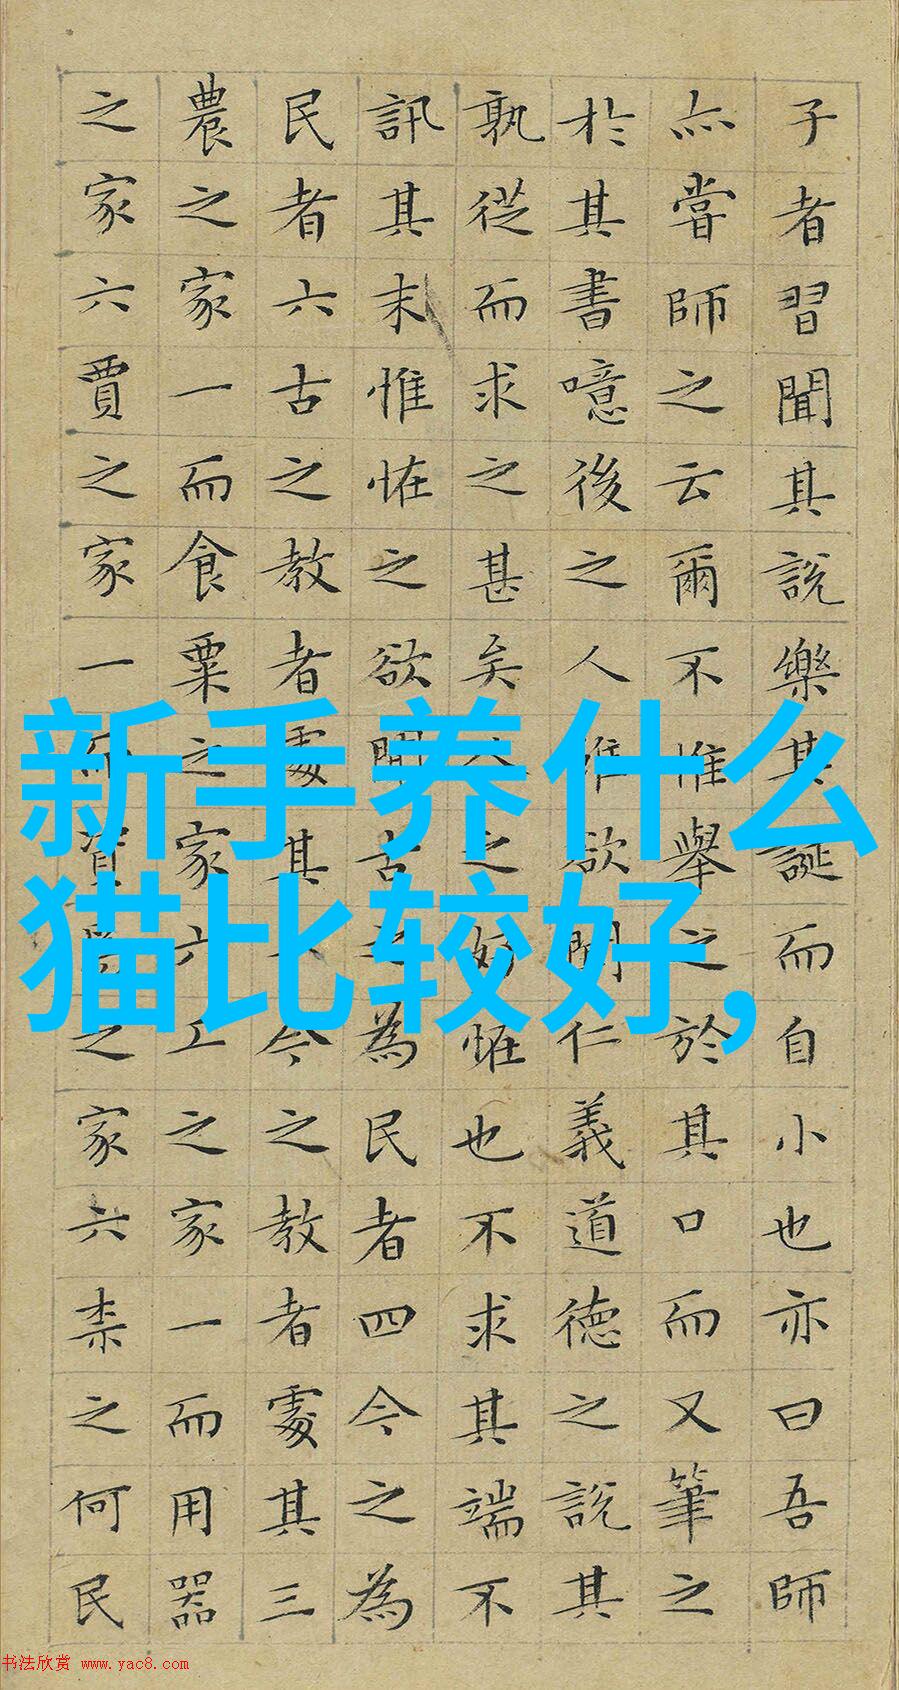 子者習聞其說樂其誕而自小也亦曰吾師
亦嘗師之云爾不惟舉之於其口而又筆之
於其書噫後之人雖欲聞仁義道德之說其
孰從而求之甚矣人之好恠也不求其端不
訊其末惟恠之欲聞古之為民者四今之為
民者六古之教者處其一今之教者處其三
農之家一而食粟之家六工之家一而用器
之家六賈之家一而資焉之家六柰之何民
新手养什么
猫比较好,
书法欣赏 www.yac8.com